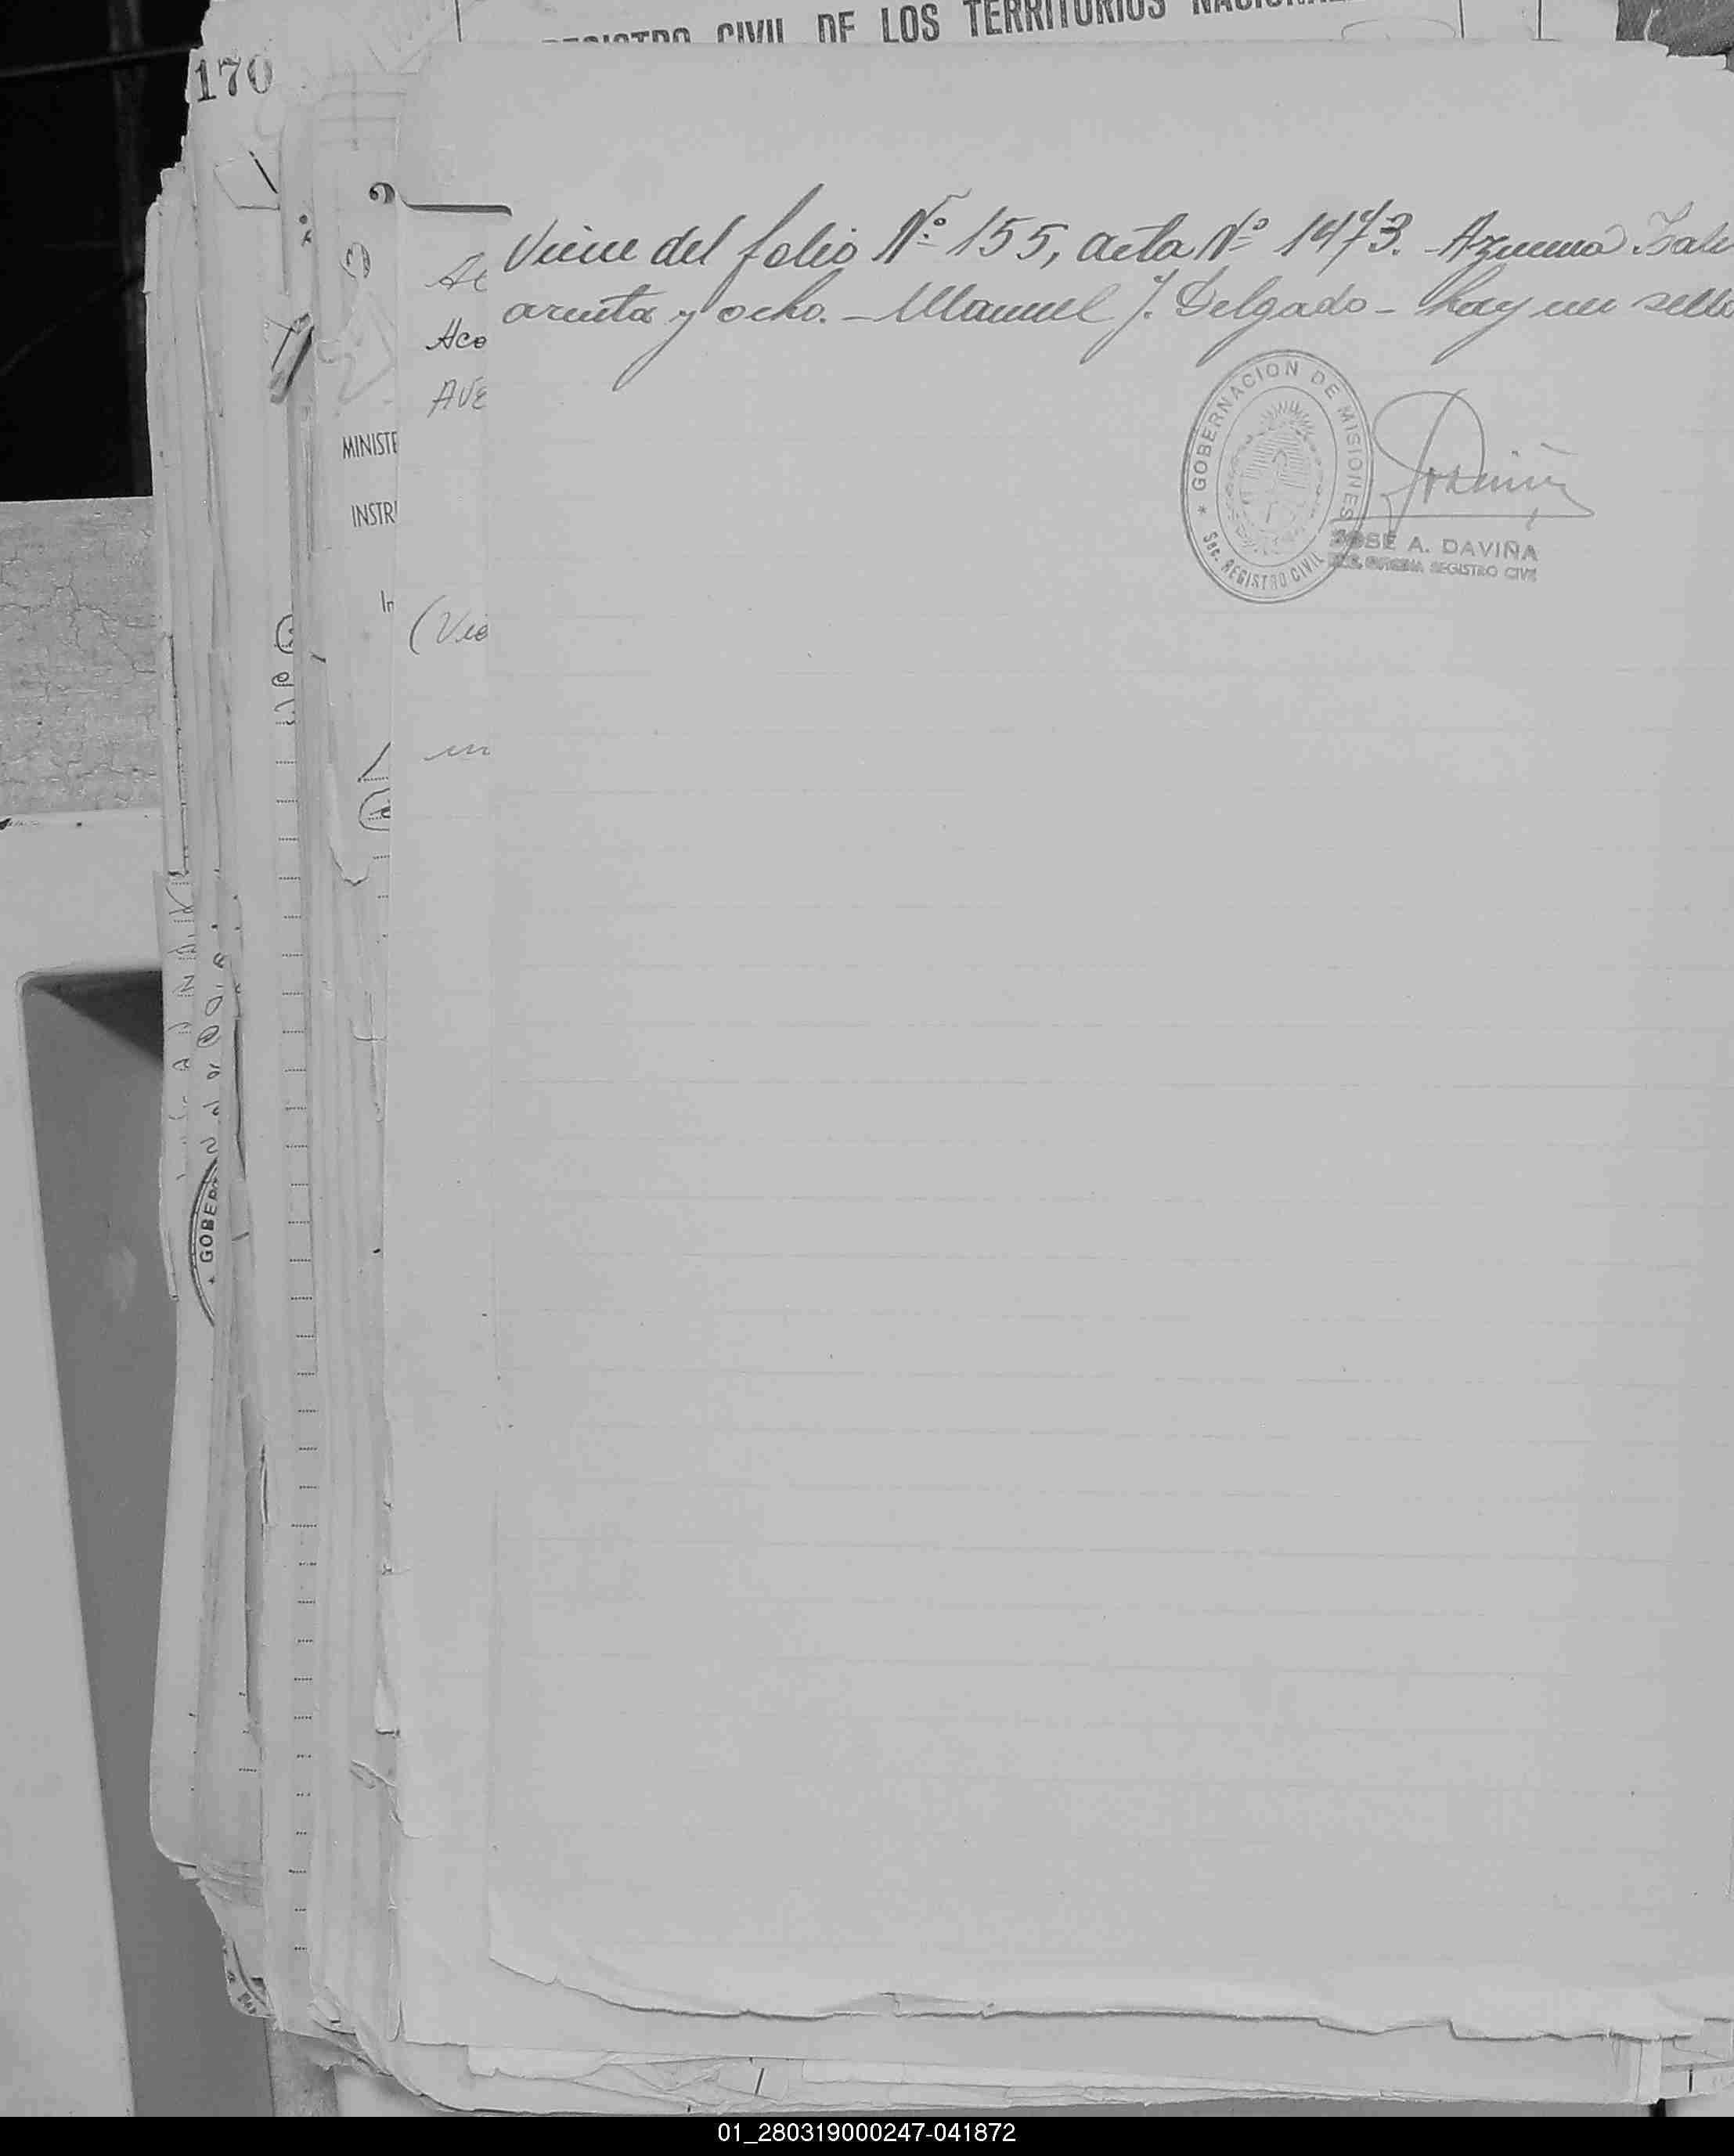 REGISTRO CIVIL DE LOS TERRITORIOS
170
Viene del folio Nº 155, acta Nº 1473. Azucena
arenta y ocho. - Manuel J. Delgado - hay un sello
Ace
AVE
MINISTE
INSTR
In
(Vie
* GOBERNACION DE MISIONES
Sec. REGISTRO CIVIL
JOSE A. DAVIÑA
REGISTRO CIVIL
* GOBER
01_280319000247-041872